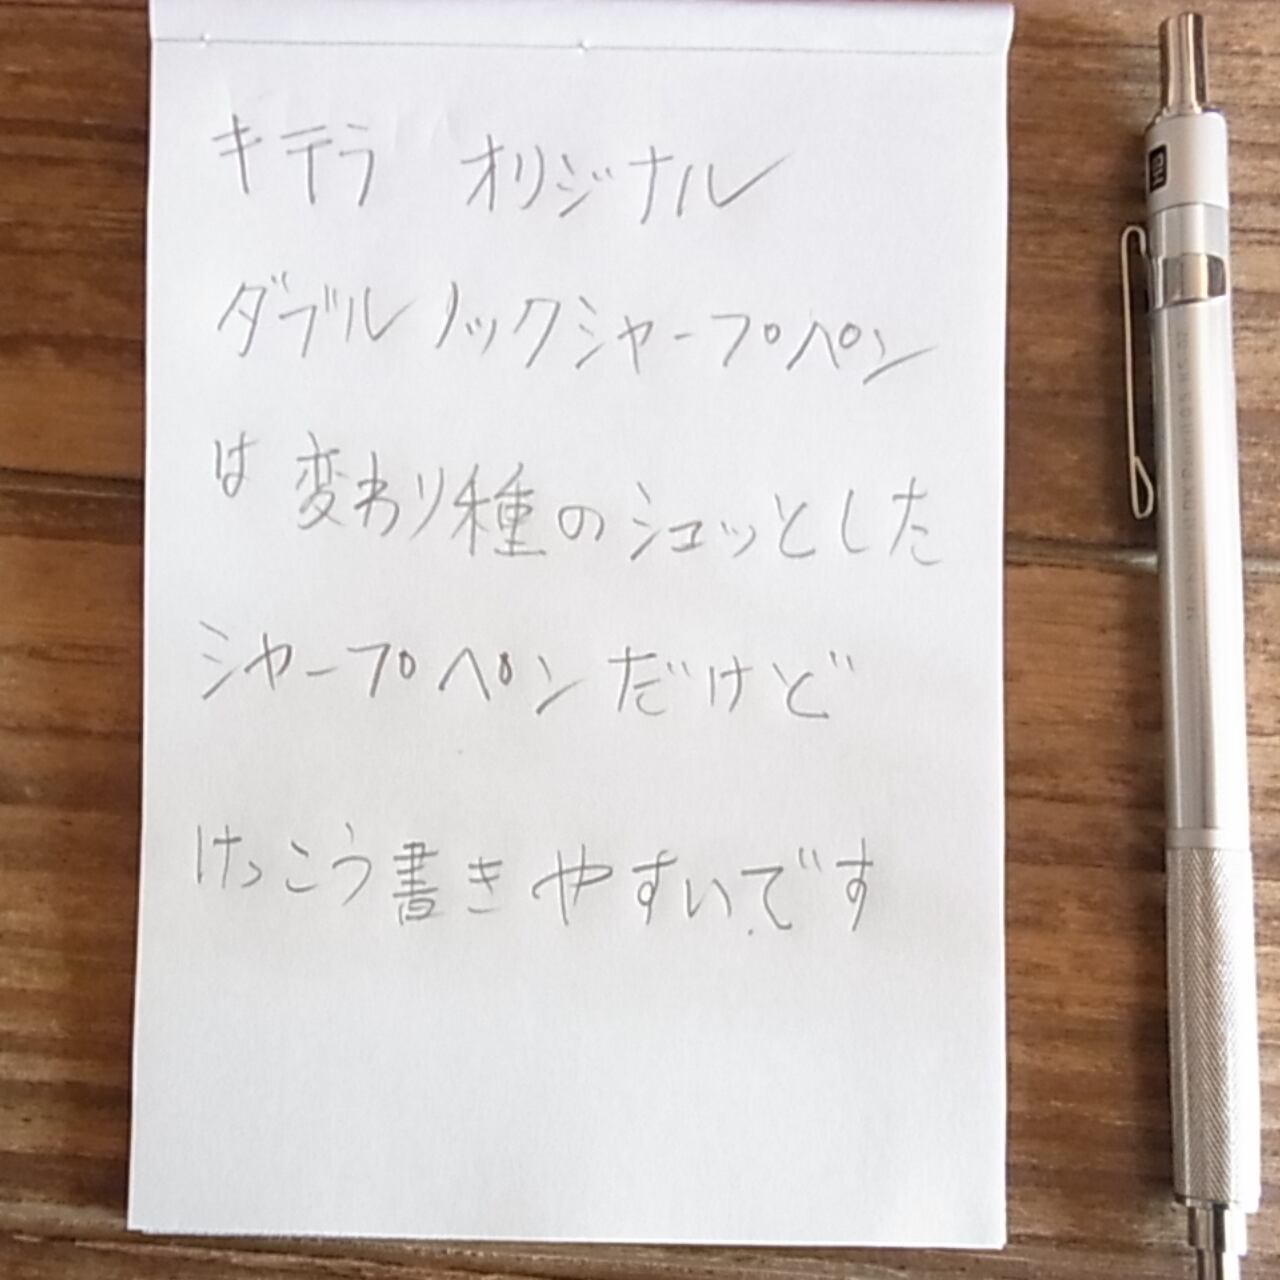 キテラ オリジナル
ダブルノックシャープペン
は変わり種のシュッとした
シャープペンだけど
けっこう書きやすいです